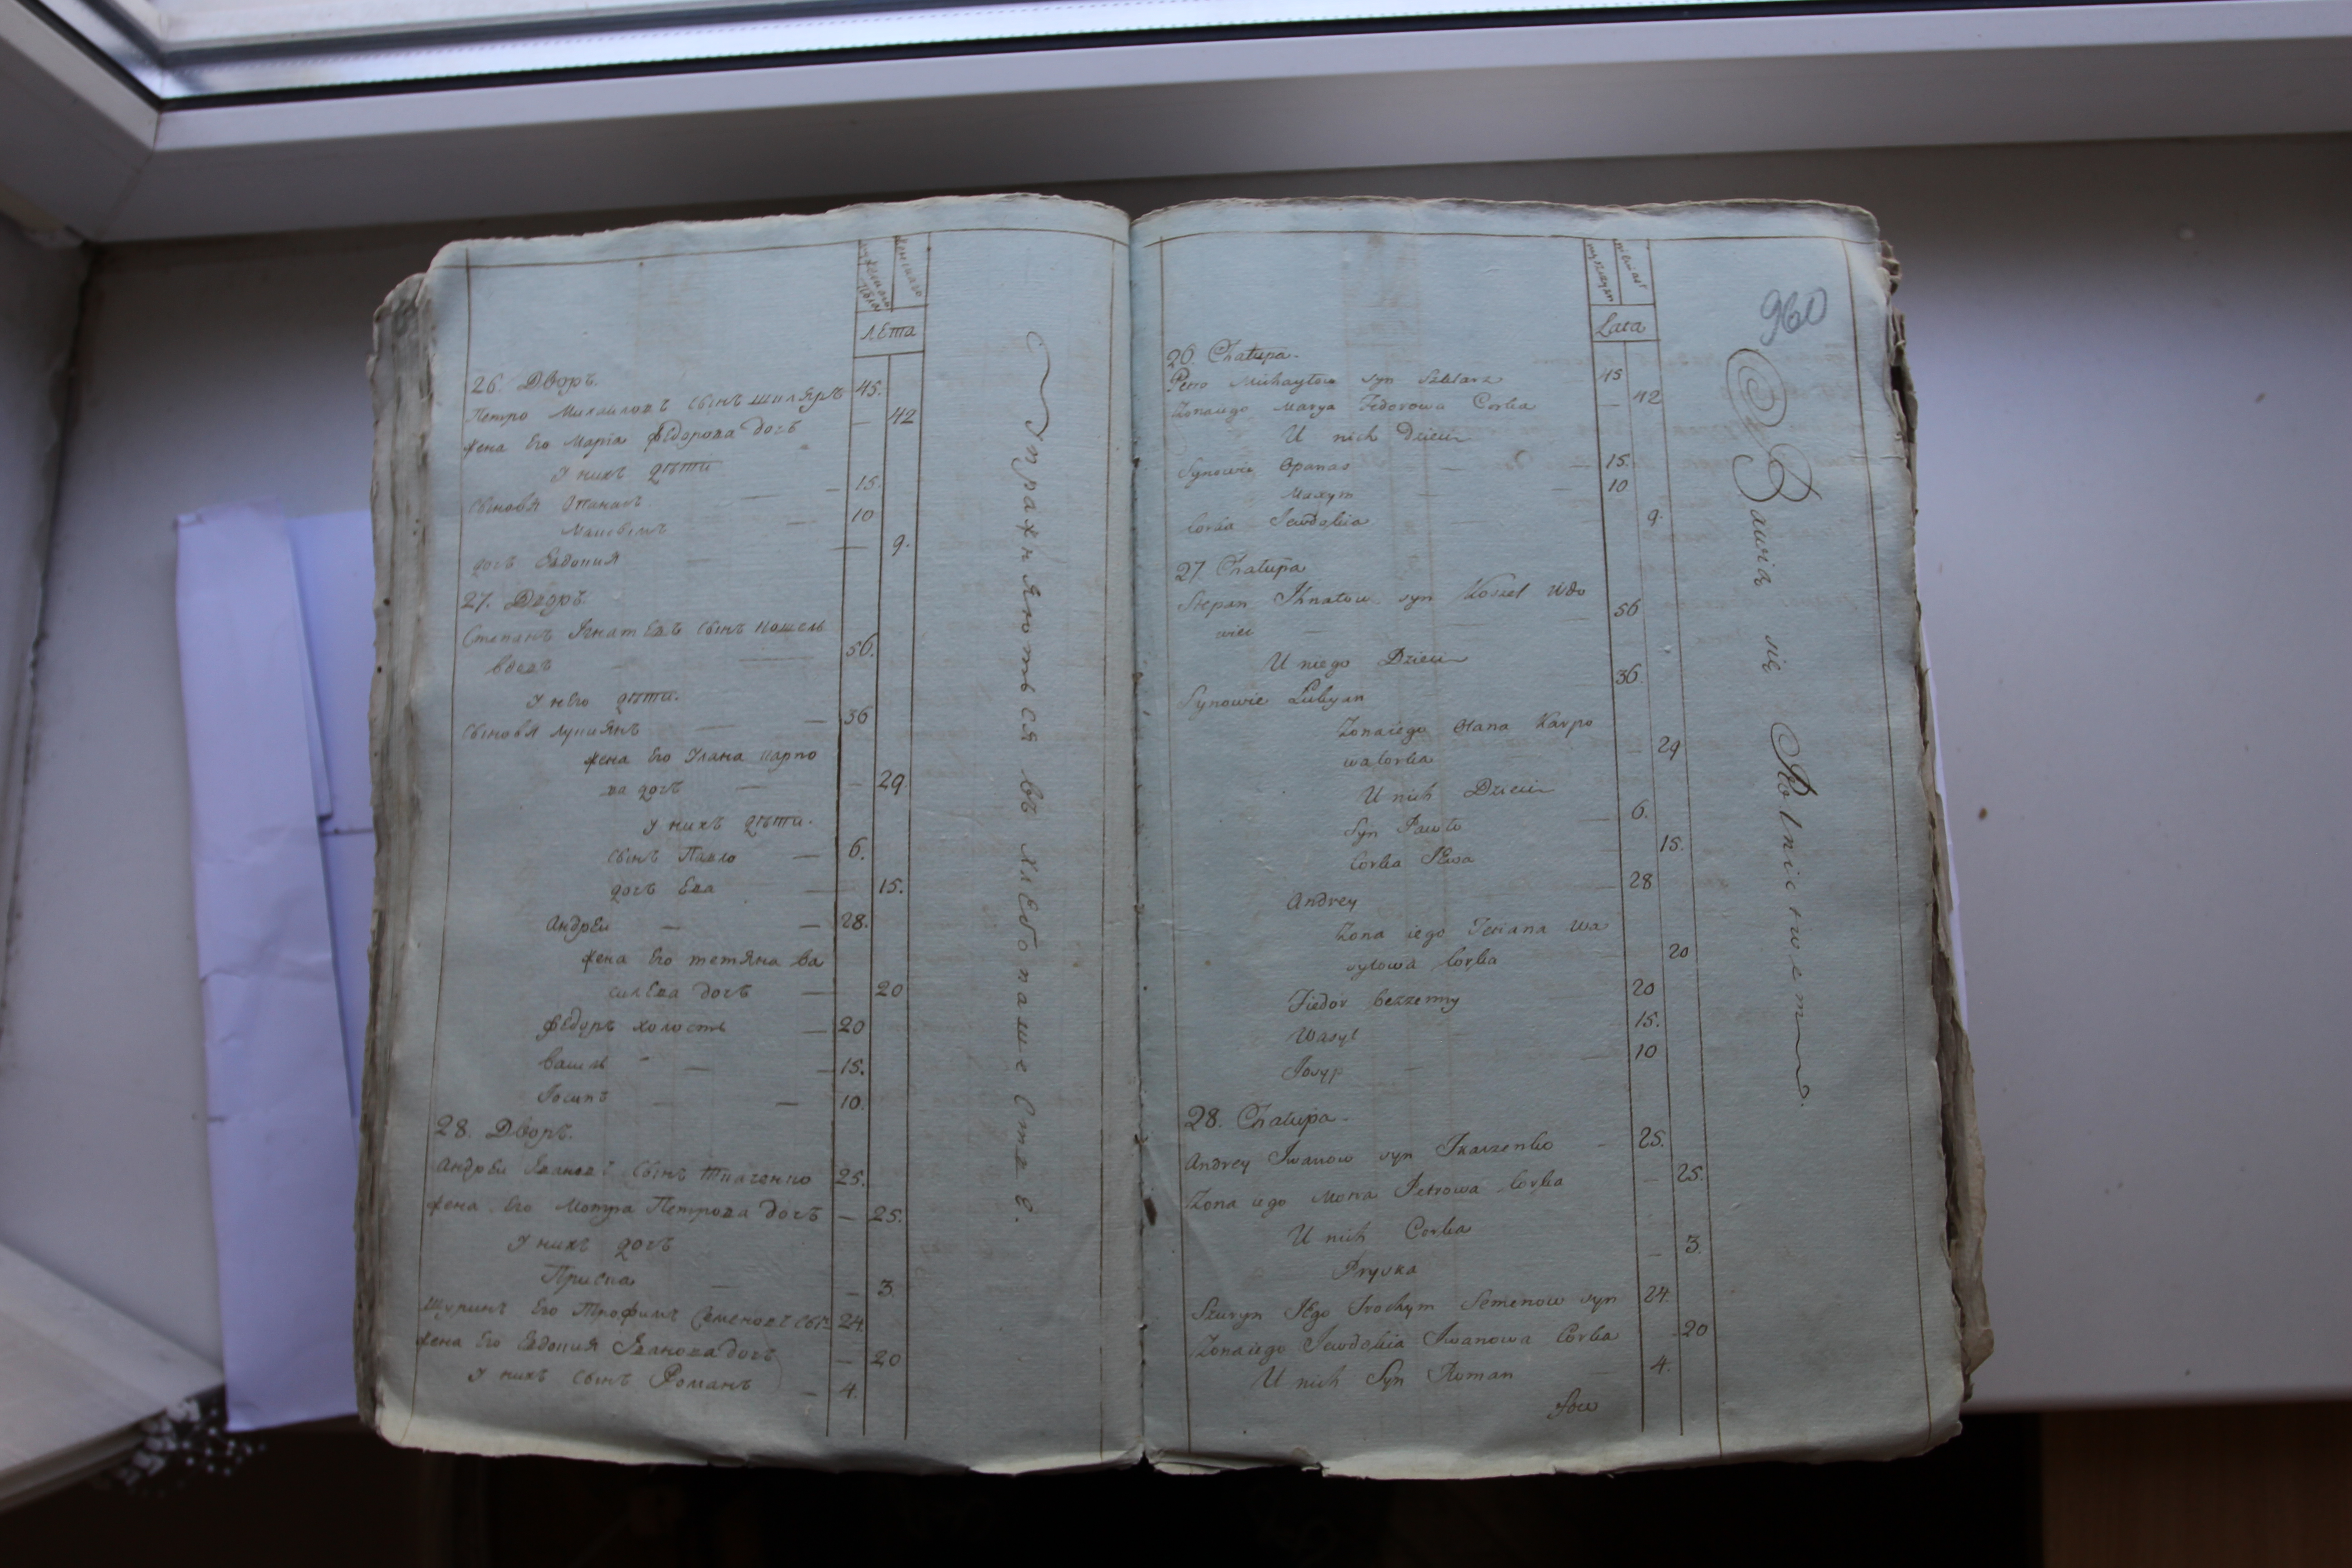 мужескаго пола
женскаго
лѣта
26. Дворъ.
Петро Михайловъ сынъ шкляръ 45.
жена Его Марiа Федорова дочъ — 42
У нихъ дѣти
сыновя Опанасъ — 15.
Максымъ — 10
дочъ Евдокия — 9.
27. Дворъ.
Степанъ Игнатевъ сынъ кошель
вдовъ — 56.
У него дѣти.
сыновя Лукиянъ — 36
жена Его Улана карпо
ва дочъ — 29
У нихъ дѣти.
сынъ Павло — 6.
дочъ Ева — 15.
Андрей — 28.
жена Его тетяна ва
силева дочъ — 20
Федоръ холостъ — 20
васил — 15.
Iосипъ — 10.
28. Дворъ.
Андрей Ивановъ сынъ ткаченко 25.
жена Его Мотра Петрова дочъ — 25.
У нихъ дочъ
Приска — 3.
Шуринъ Его Трофимъ Семеновъ сынъ 24.
жена Его Евдокия Иванова дочъ — 20
У нихъ сынъ Романъ — 4.
Упражняються въ хлебопашестве.
960
męzczyzn
niewiast
Lata
26. Chałupa.
Petro Michayłow syn Szklarz 45
Zona iego Marya Fedorowa Corka — 42
U nich Dzieci
Synowie Opanas — 15.
Maxym — 10
Corka Jewdokia 9.
27. Chałupa
Stepan Ihnatow syn Koszel Wdo
wiec — 56
U niego Dzieci
Synowie Lukyan 36.
Zona iego Olana Karpo
wa Corka — 29
U nich Dzieci
Syn Pawło — 6.
Corka Jewa 15.
Andrey — 28
Zona iego Teciana Wa
syłowa Corka 20
Fiedor bezzenny 20
Wasyl 15.
Josyp — 10
28. Chałupa
Andrey Iwanow syn Tkaczenko — 25.
Zona iego Motra Petrowa Corka — 25.
U nich Corka
Pryska — 3.
Szuryn Jego Trochym Semenow syn 24.
Zona iego Jewdokia Iwanowa Corka 20
U nich Syn Roman — 4.
Bawia się Rolnictwem